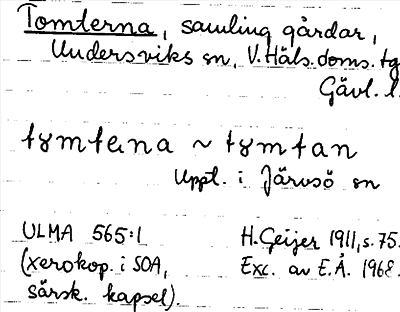 Tomterna, samling gårdar,
Undersviks sn, V. Häls. doms. tg
Gävl. l.
tymtena ~ tymtan
Uppt. i Järvsö sn
ULMA 565:1 H. Geijer 1911, s. 75.
(xerokop. i SOA, Exc. av E.Å. 1968.
särsk. kapsel).